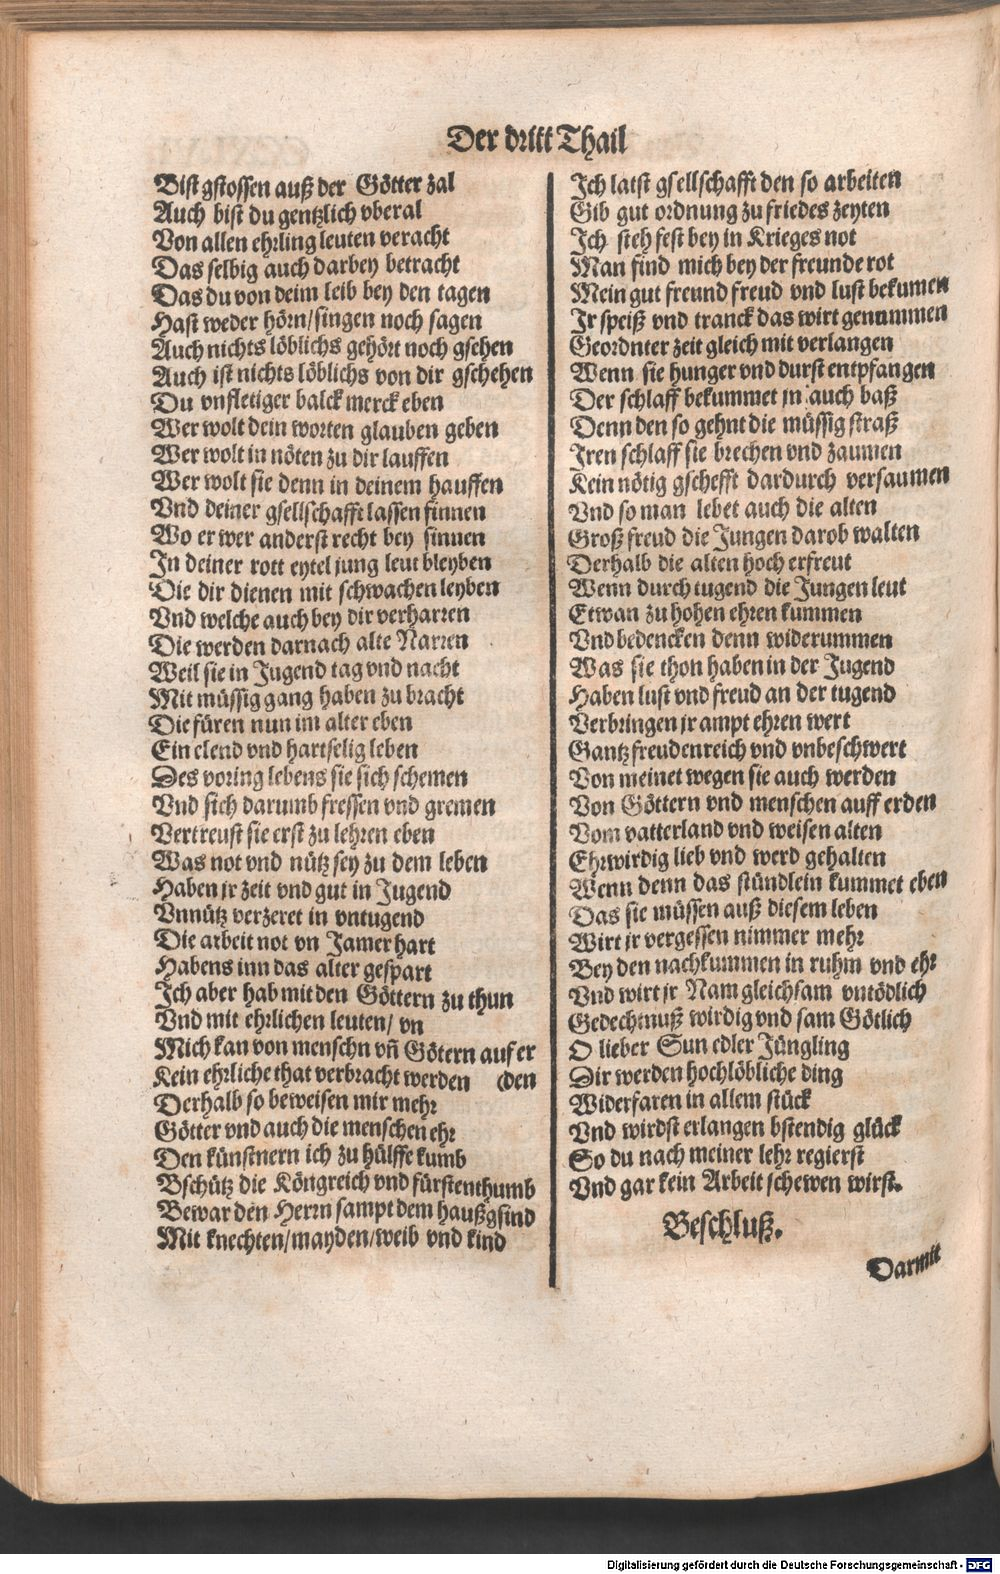 Der dritt Thail
Bist gstossen auß der Götter zal
Auch bist du gentzlich vberal
Von allen ehrling leuten veracht
Das selbig auch darbey betracht
Das du von deim leib bey den tagen
Hast weder hörn/singen noch sagen
Auch nichts löblichs gehört noch gsehen
Auch ist nichts löblichs von dir gschehen
Du vnfletiger balck merck eben
Wer wolt dein worten glauben geben
Wer wolt in nöten zu dir lauffen
Wer wolt sie denn in deinem hauffen
Vnd deiner gsellschafft lassen finnen
Wo er wer anderst recht bey sinnen
In deiner rott eytel jung leut bleyben
Die dir dienen mit schwachen leyben
Vnd welche auch bey dir verharren
Die werden darnach alte Narren
Weil sie in Jugend tag vnd nacht
Mit müssig gang haben zu bracht
Die füren nun im alter eben
Ein elend vnd hartselig leben
Des voring lebens sie sich schemen
Vnd sich darumb fressen vnd gremen
Vertreust sie erst zu lehren eben
Was not vnd nütz sey zu dem leben
Haben jr zeit vnd gut in Jugend
Vnnütz verzeret in vntugend
Die arbeit not vn Jamer hart
Habens inn das alter gespart
Ich aber hab mit den Göttern zu thun
Vnd mit ehrlichen leuten/ vn
Mich kan von menschn vñ Götern auf er
Kein ehrliche that verbracht werden (den
Derhalb so beweisen mir mehr
Götter vnd auch die menschen ehr
Den künstnern ich zu hülffe kumb
Bschütz die Köngreich vnd fürstenthumb
Bewar den Herrn sampt dem haußgsind
Mit knechten/mayden/weib vnd kind
Ich latst gsellschafft den so arbeiten
Gib gut ordnung zu friedes zeyten
Ich steh fest bey in Krieges not
Man find mich bey der freunde rot
Mein gut freund freud vnd lust bekumen
Ir speiß vnd tranck das wirt genummen
Geordnter zeit gleich mit verlangen
Wenn sie hunger vnd durst entpfangen
Der schlaff bekummet jn auch baß
Denn den so gehnt die müssig straß
Iren schlaff sie brechen vnd zaumen
Kein nötig gschefft dardurch versaumen
Vnd so man lebet auch die alten
Groß freud die Jungen darob walten
Derhalb die alten hoch erfreut
Wenn durch tugend die Jungen leut
Etwan zu hohen ehren kummen
Vnd bedencken denn widerummen
Was sie thon haben in der Jugend
Haben lust vnd freud an der tugend
Verbringen jr ampt ehren wert
Gantz freudenreich vnd vnbeschwert
Von meinet wegen sie auch werden
Von Göttern vnd menschen auff erden
Vom vatterland vnd weisen alten
Ehrwirdig lieb vnd werd gehalten
Wenn denn das stündlein kummet eben
Das sie müssen auß diesem leben
Wirt jr vergessen nimmer mehr
Bey den nachkummen in ruhm vnd ehr
Vnd wirt jr Nam gleichsam vntödlich
Gedechtnuß wirdig vnd sam Götlich
O lieber Sun edler Jüngling
Dir werden hochlöbliche ding
Widerfaren in allem stück
Vnd wirdst erlangen bstendig glück
So du nach meiner lehr regierst
Vnd gar kein Arbeit schewen wirst.
Beschluß.
Darmit
Digitalisierung gefördert durch die Deutsche Forschungsgemeinschaft - DFG